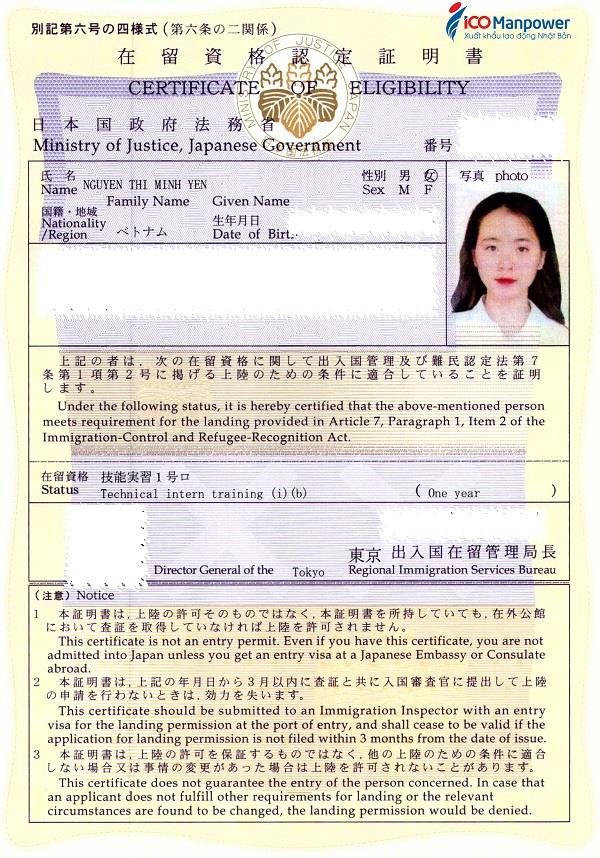 別記第六号の四様式（第六条の二関係）
iCOManpower
Xuất khẩu lao động Nhật Bản
在留資格認定証明書
CERTIFICATE OF ELIGIBILITY
MINISTRY OF JUSTICE JAPAN
日本国政府法務省
Ministry of Justice, Japanese Government 番号
氏名 性別 男 女 写真 photo
Name NGUYEN THI MINH YEN Sex M F
Family Name Given Name
国籍・地域 生年月日
Nationality ベトナム Date of Birth
/Region
上記の者は，次の在留資格に関して出入国管理及び難民認定法第７
条第１項第２号に掲げる上陸のための条件に適合していることを証明
します。
Under the following status, it is hereby certified that the above-mentioned person
meets requirement for the landing provided in Article 7, Paragraph 1, Item 2 of the
Immigration-Control and Refugee-Recognition Act.
在留資格 技能実習１号ロ
Status Technical intern training (i)(b) ( One year )
東京 出入国在留管理局長
Director General of the Tokyo Regional Immigration Services Bureau
（注意）Notice
1 本証明書は，上陸の許可そのものではなく，本証明書を所持していても，在外公館
において査証を取得していなければ上陸を許可されません。
This certificate is not an entry permit. Even if you have this certificate, you are not
admitted into Japan unless you get an entry visa at a Japanese Embassy or Consulate
abroad.
2 本証明書は，上記の年月日から３月以内に査証と共に入国審査官に提出して上陸
の申請を行わないときは，効力を失います。
This certificate should be submitted to an Immigration Inspector with an entry
visa for the landing permission at the port of entry, and shall cease to be valid if the
application for landing permission is not filed within 3 months from the date of issue.
3 本証明書は，上陸の許可を保証するものではなく，他の上陸のための条件に適合
しない場合又は事情の変更があった場合は上陸を許可されないことがあります。
This certificate does not guarantee the entry of the person concerned. In case that
an applicant does not fulfill other requirements for landing or the relevant
circumstances are found to be changed, the landing permission would be denied.